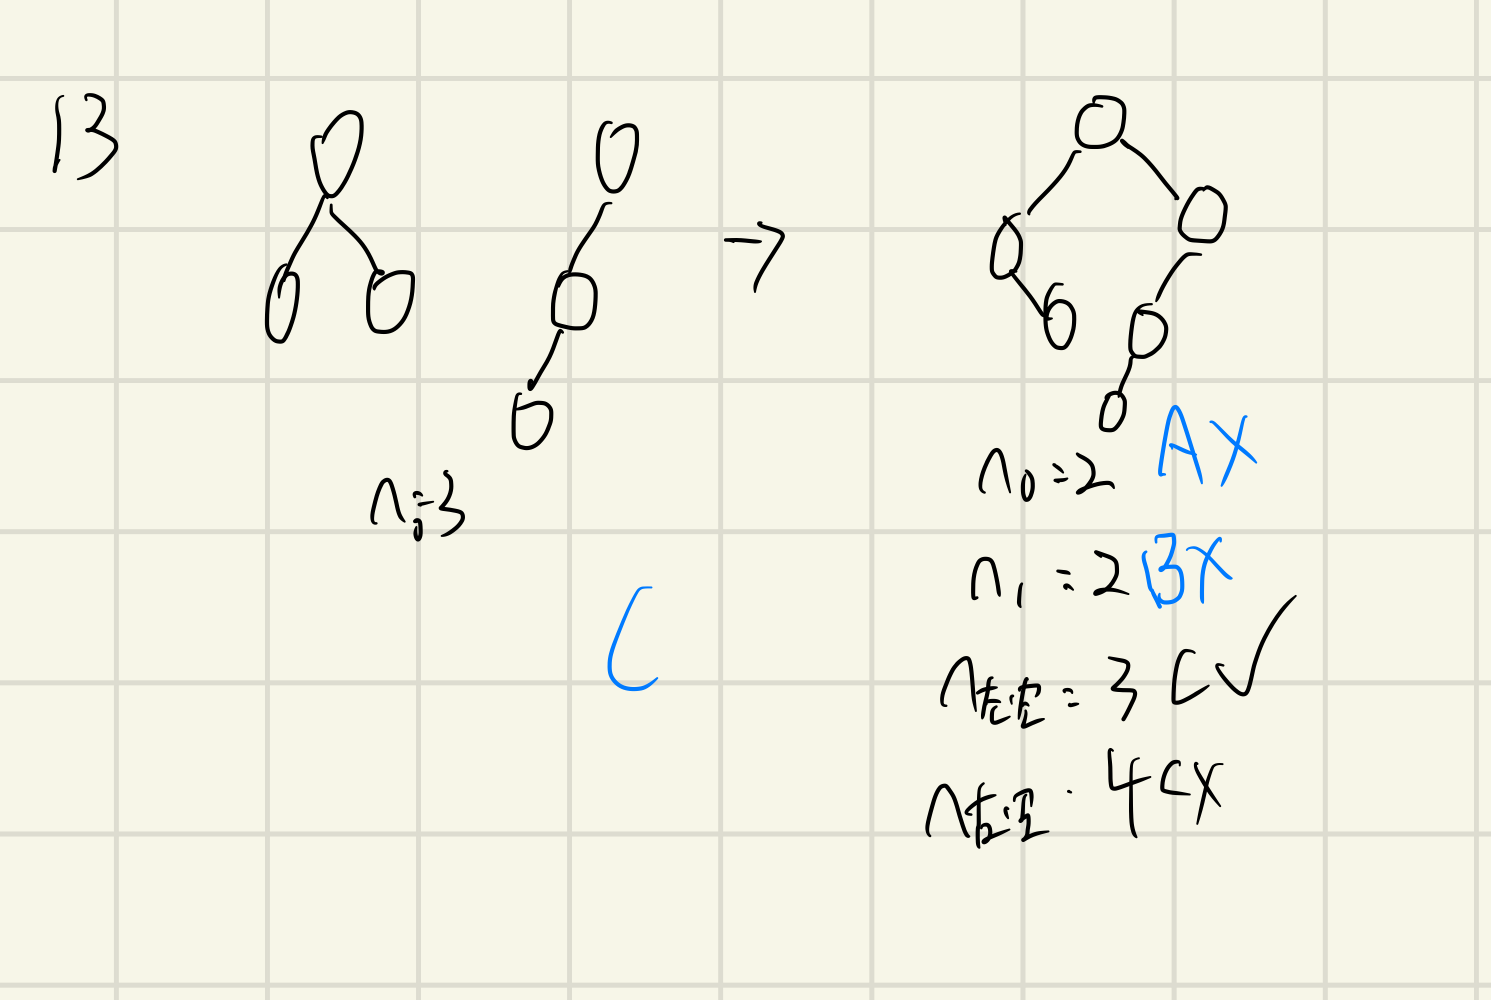 13
n₀=3
n₀=2 A×
n₁=2 B×
n左空=3 C✓
n右空 4 C×
C